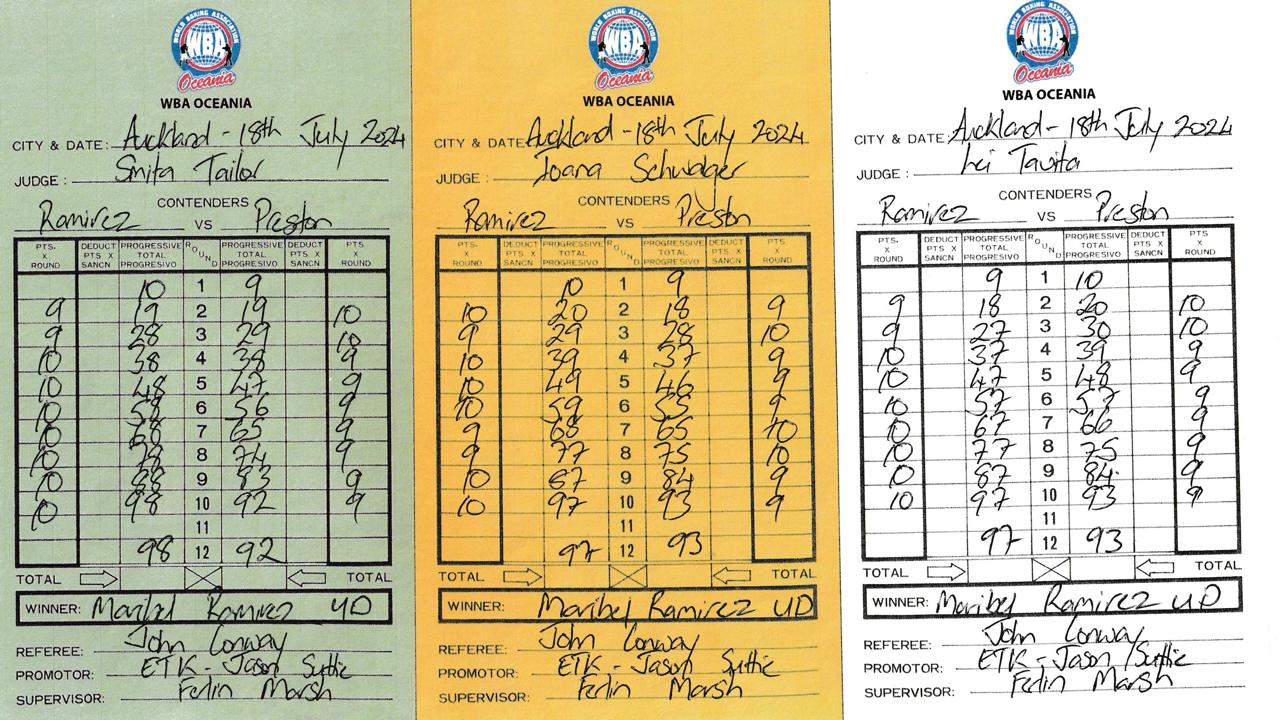 WORLD BOXING ASSOCIATION
WBA
Oceania
WBA OCEANIA
CITY & DATE: Auckland - 18th July 2024
JUDGE : Smita Tailor
CONTENDERS
Ramirez VS Preston
PTS. X ROUND DEDUCT PTS X SANCN PROGRESSIVE TOTAL PROGRESIVO ROUND PROGRESSIVE TOTAL PROGRESIVO DEDUCT PTS X SANCN PTS X ROUND
10 1 9
9 19 2 19 10
9 28 3 29 10
10 38 4 38 9
10 48 5 47 9
10 58 6 56 9
10 68 7 65 9
10 78 8 74 9
10 88 9 83 9
10 98 10 92 9
11
98 12 92
TOTAL TOTAL
WINNER: Maribel Ramirez UD
REFEREE: John Conway
PROMOTOR: ETK - Jason Suttie
SUPERVISOR: Ferlin Marsh
WORLD BOXING ASSOCIATION
WBA
Oceania
WBA OCEANIA
CITY & DATE: Auckland - 18th July 2024
JUDGE : Ioana Schwalger
CONTENDERS
Ramirez VS Preston
PTS. X ROUND DEDUCT PTS X SANCN PROGRESSIVE TOTAL PROGRESIVO ROUND PROGRESSIVE TOTAL PROGRESIVO DEDUCT PTS X SANCN PTS X ROUND
10 1 9
10 20 2 18 9
9 29 3 28 10
10 39 4 37 9
10 49 5 46 9
10 59 6 55 9
9 68 7 65 10
9 77 8 75 10
10 87 9 84 9
10 97 10 93 9
11
97 12 93
TOTAL TOTAL
WINNER: Maribel Ramirez UD
REFEREE: John Conway
PROMOTOR: ETK - Jason Suttie
SUPERVISOR: Ferlin Marsh
WORLD BOXING ASSOCIATION
WBA
Oceania
WBA OCEANIA
CITY & DATE: Auckland - 18th July 2024
JUDGE : Lei Tauita
CONTENDERS
Ramirez VS Preston
PTS. X ROUND DEDUCT PTS X SANCN PROGRESSIVE TOTAL PROGRESIVO ROUND PROGRESSIVE TOTAL PROGRESIVO DEDUCT PTS X SANCN PTS X ROUND
9 1 10
9 18 2 20 10
9 27 3 30 10
10 37 4 39 9
10 47 5 48 9
10 57 6 57 9
10 67 7 66 9
10 77 8 75 9
10 87 9 84 9
10 97 10 93 9
11
97 12 93
TOTAL TOTAL
WINNER: Maribel Ramirez UD
REFEREE: John Conway
PROMOTOR: ETK - Jason Suttie
SUPERVISOR: Ferlin Marsh